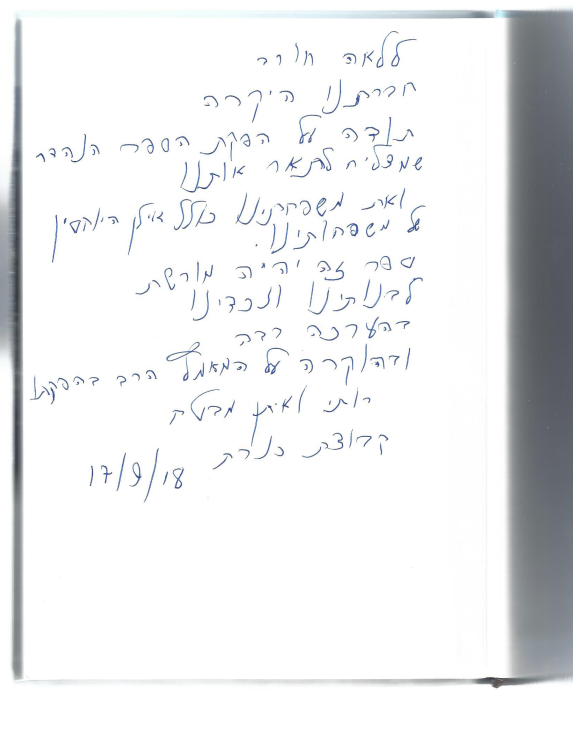 ללאה חורב
חברתנו היקרה
תודה על הפקת הספר הנהדר
שמצליח לתאר אותנו
ואת משפחתינו כולל אילן היוחסין
של משפחותינו.
ספר זה יהיה מורשת
לבנותינו ונכדינו
בהערכה רבה
ובהוקרה על המאמץ הרב בהפקתו
רותי ואיתן
קבוצת כנרת 17/9/18